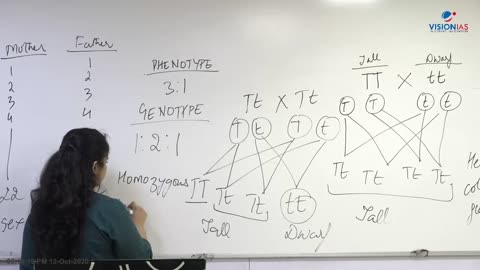 VISIONIAS
Mother Father
1 1
2 2
3 3
4 4
22
Sex
PHENOTYPE
3:1
GENOTYPE
1:2:1
Homozygous
Tt X Tt
T t T t
TT Tt Tt tt
Tall Dwarf
Tall Dwarf
TT X tt
T T t t
Tt Tt Tt Tt
Tall
PM 12-Oct-2020